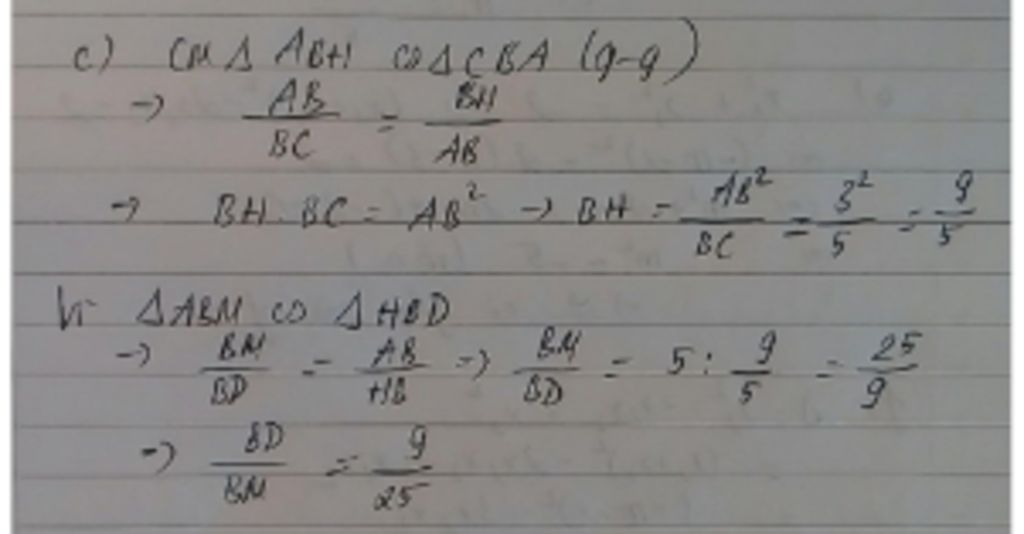 c) CM Δ ABH ∽ Δ CBA (g-g)
→ AB/BC = BH/AB
→ BH . BC = AB² → BH = AB²/BC = 3²/5 = 9/5
Vì Δ ABM ∽ Δ HBD
→ BM/BD = AB/HB → BM/BD = 5 : 9/5 = 25/9
→ BD/BM = 9/25